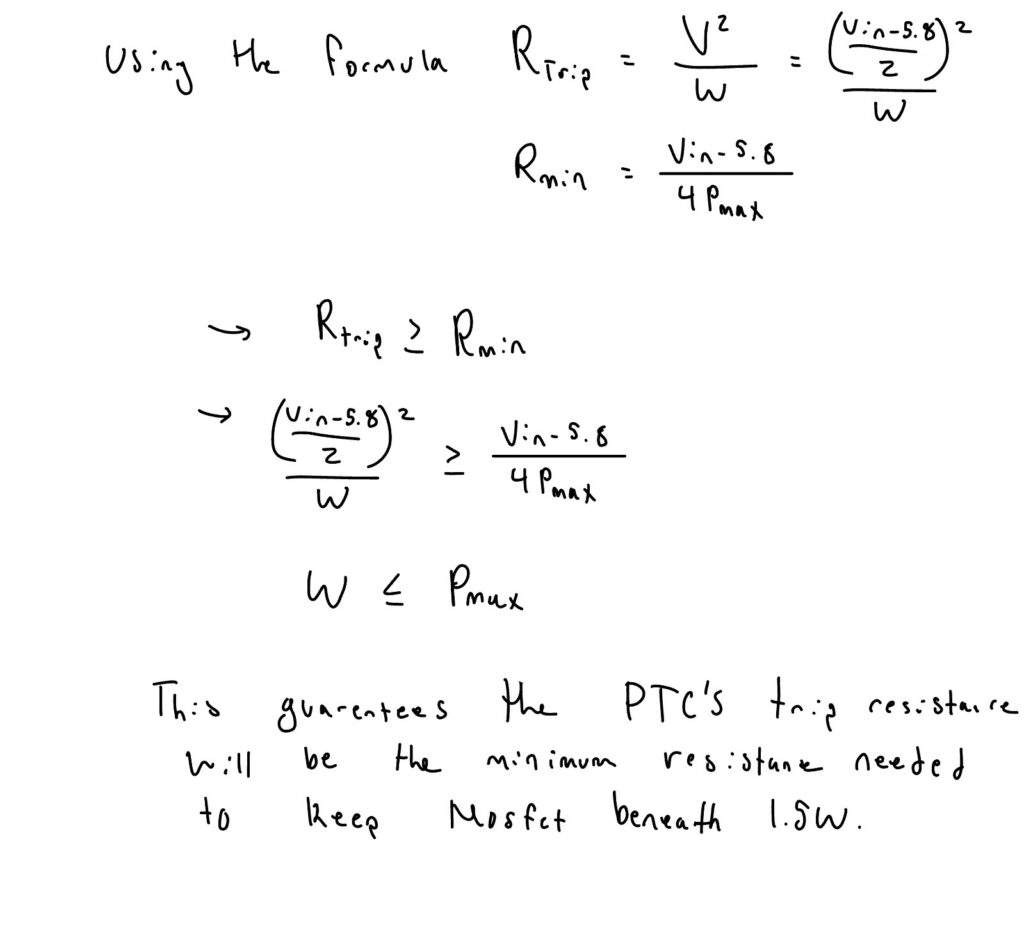 Using the formula R_Trip = V²/W = ((Vin-5.8)/2)²/W
R_min = (Vin-5.8)/(4 P_max)
→ R_trip ≥ R_min
→ ((Vin-5.8)/2)²/W ≥ (Vin-5.8)/(4 P_max)
W ≤ P_max
This guarentees the PTC's trip resistance
will be the minimum resistance needed
to keep Mosfet beneath 1.5W.